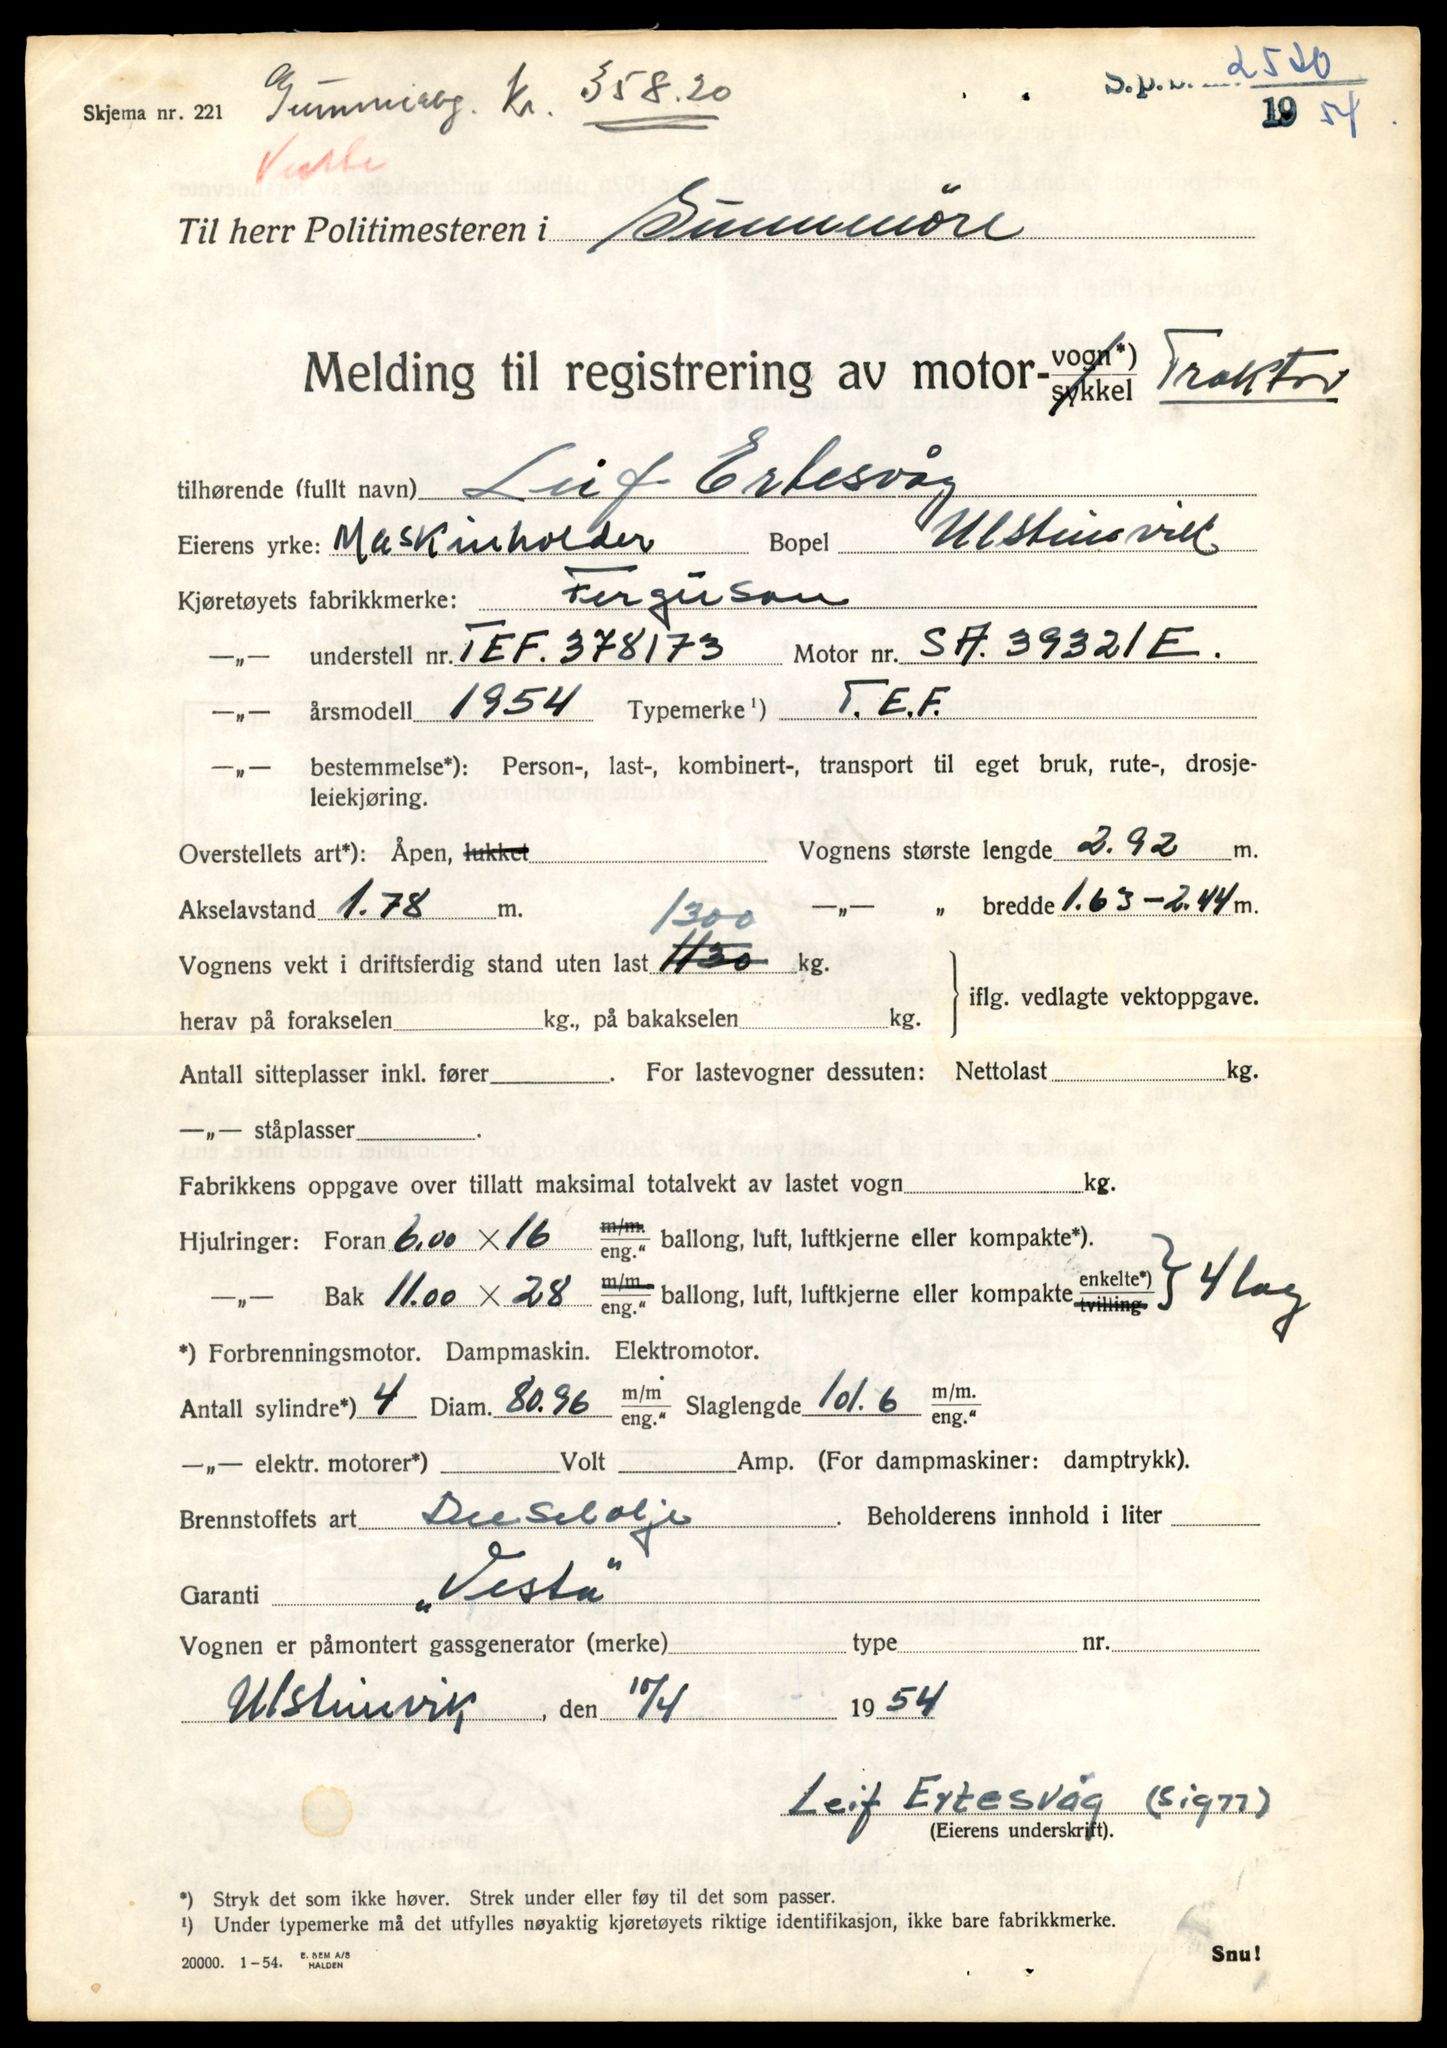 2520
Skjema nr. 221 Gummiavg. Kr. 358.20
19 54.
Til herr Politimesteren i Sunnmöre
Melding til registrering av motor-vogn*) / sykkel Traktor
tilhørende (fullt navn) Leif Ertesvåg
Eierens yrke: Maskinholder Bopel Ulsteinsvik
Kjøretøyets fabrikkmerke: Ferguson
—„— understell nr. TEF. 378173 Motor nr. SA. 39321E.
—„— årsmodell 1954 Typemerke¹) T.E.F.
—„— bestemmelse*): Person-, last-, kombinert-, transport til eget bruk, rute-, drosje-
leiekjøring.
Overstellets art*): Åpen, lukket Vognens største lengde 2.92 m.
Akselavstand 1.78 m. —„— „ bredde 1.63 - 2.44 m.
1300
Vognens vekt i driftsferdig stand uten last 1130 kg.
iflg. vedlagte vektoppgave.
herav på forakselen kg., på bakakselen kg.
Antall sitteplasser inkl. fører . For lastevogner dessuten: Nettolast kg.
—„— ståplasser .
Fabrikkens oppgave over tillatt maksimal totalvekt av lastet vogn kg.
Hjulringer: Foran 6.00 × 16 m/m. / eng.“ ballong, luft, luftkjerne eller kompakte*).
—„— Bak 11.00 × 28 m/m. / eng.“ ballong, luft, luftkjerne eller kompakte enkelte*) / tvilling } 4 lag
*) Forbrenningsmotor. Dampmaskin. Elektromotor.
Antall sylindre*) 4 Diam. 80.96 m/m / eng.“ Slaglengde 101.6 m/m. / eng.“
—„— elektr. motorer*) Volt Amp. (For dampmaskiner: damptrykk).
Brennstoffets art Dieselolje . Beholderens innhold i liter
Garanti „Vesta“
Vognen er påmontert gassgenerator (merke) type nr.
Ulsteinvik, den 10/4 19 54
Leif Ertesvåg (sign)
(Eierens underskrift).
*) Stryk det som ikke høver. Strek under eller føy til det som passer.
¹) Under typemerke må det utfylles nøyaktig kjøretøyets riktige identifikasjon, ikke bare fabrikkmerke.
20000. 1-54. E. SEM A/S HALDEN
Snu!